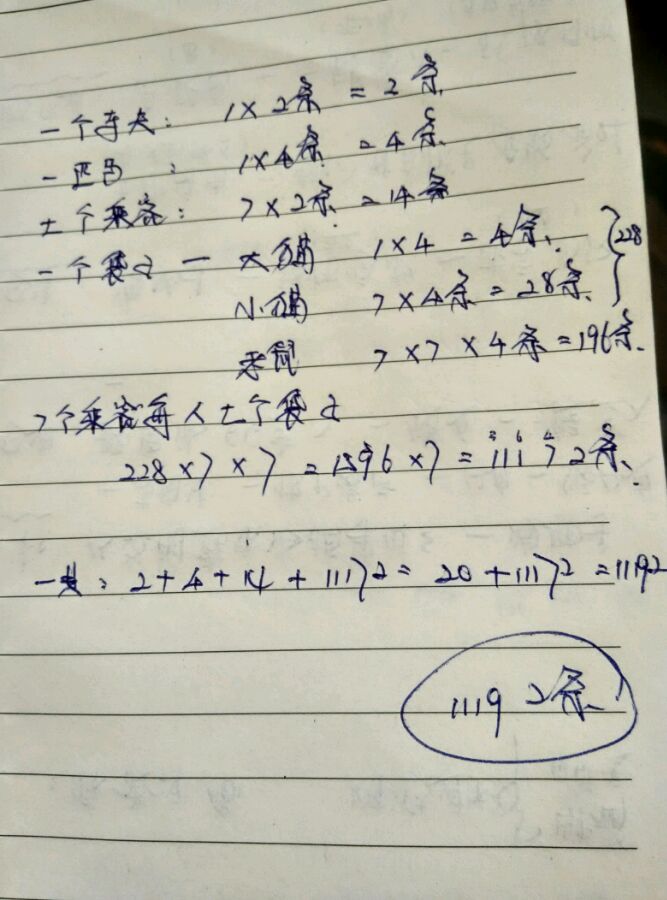 一个车夫: 1×2条 = 2条
一匹马 : 1×4条 = 4条
七个乘客: 7×2条 = 14条
一个袋子 — 大猫 1×4 = 4条 }228
小猫 7×4条 = 28条
老鼠 7×7×4条 = 196条
7个乘客每人七个袋子
228×7×7 = 1596×7 = 11172条
一共: 2+4+14+11172 = 20+11172 = 11192
11192条